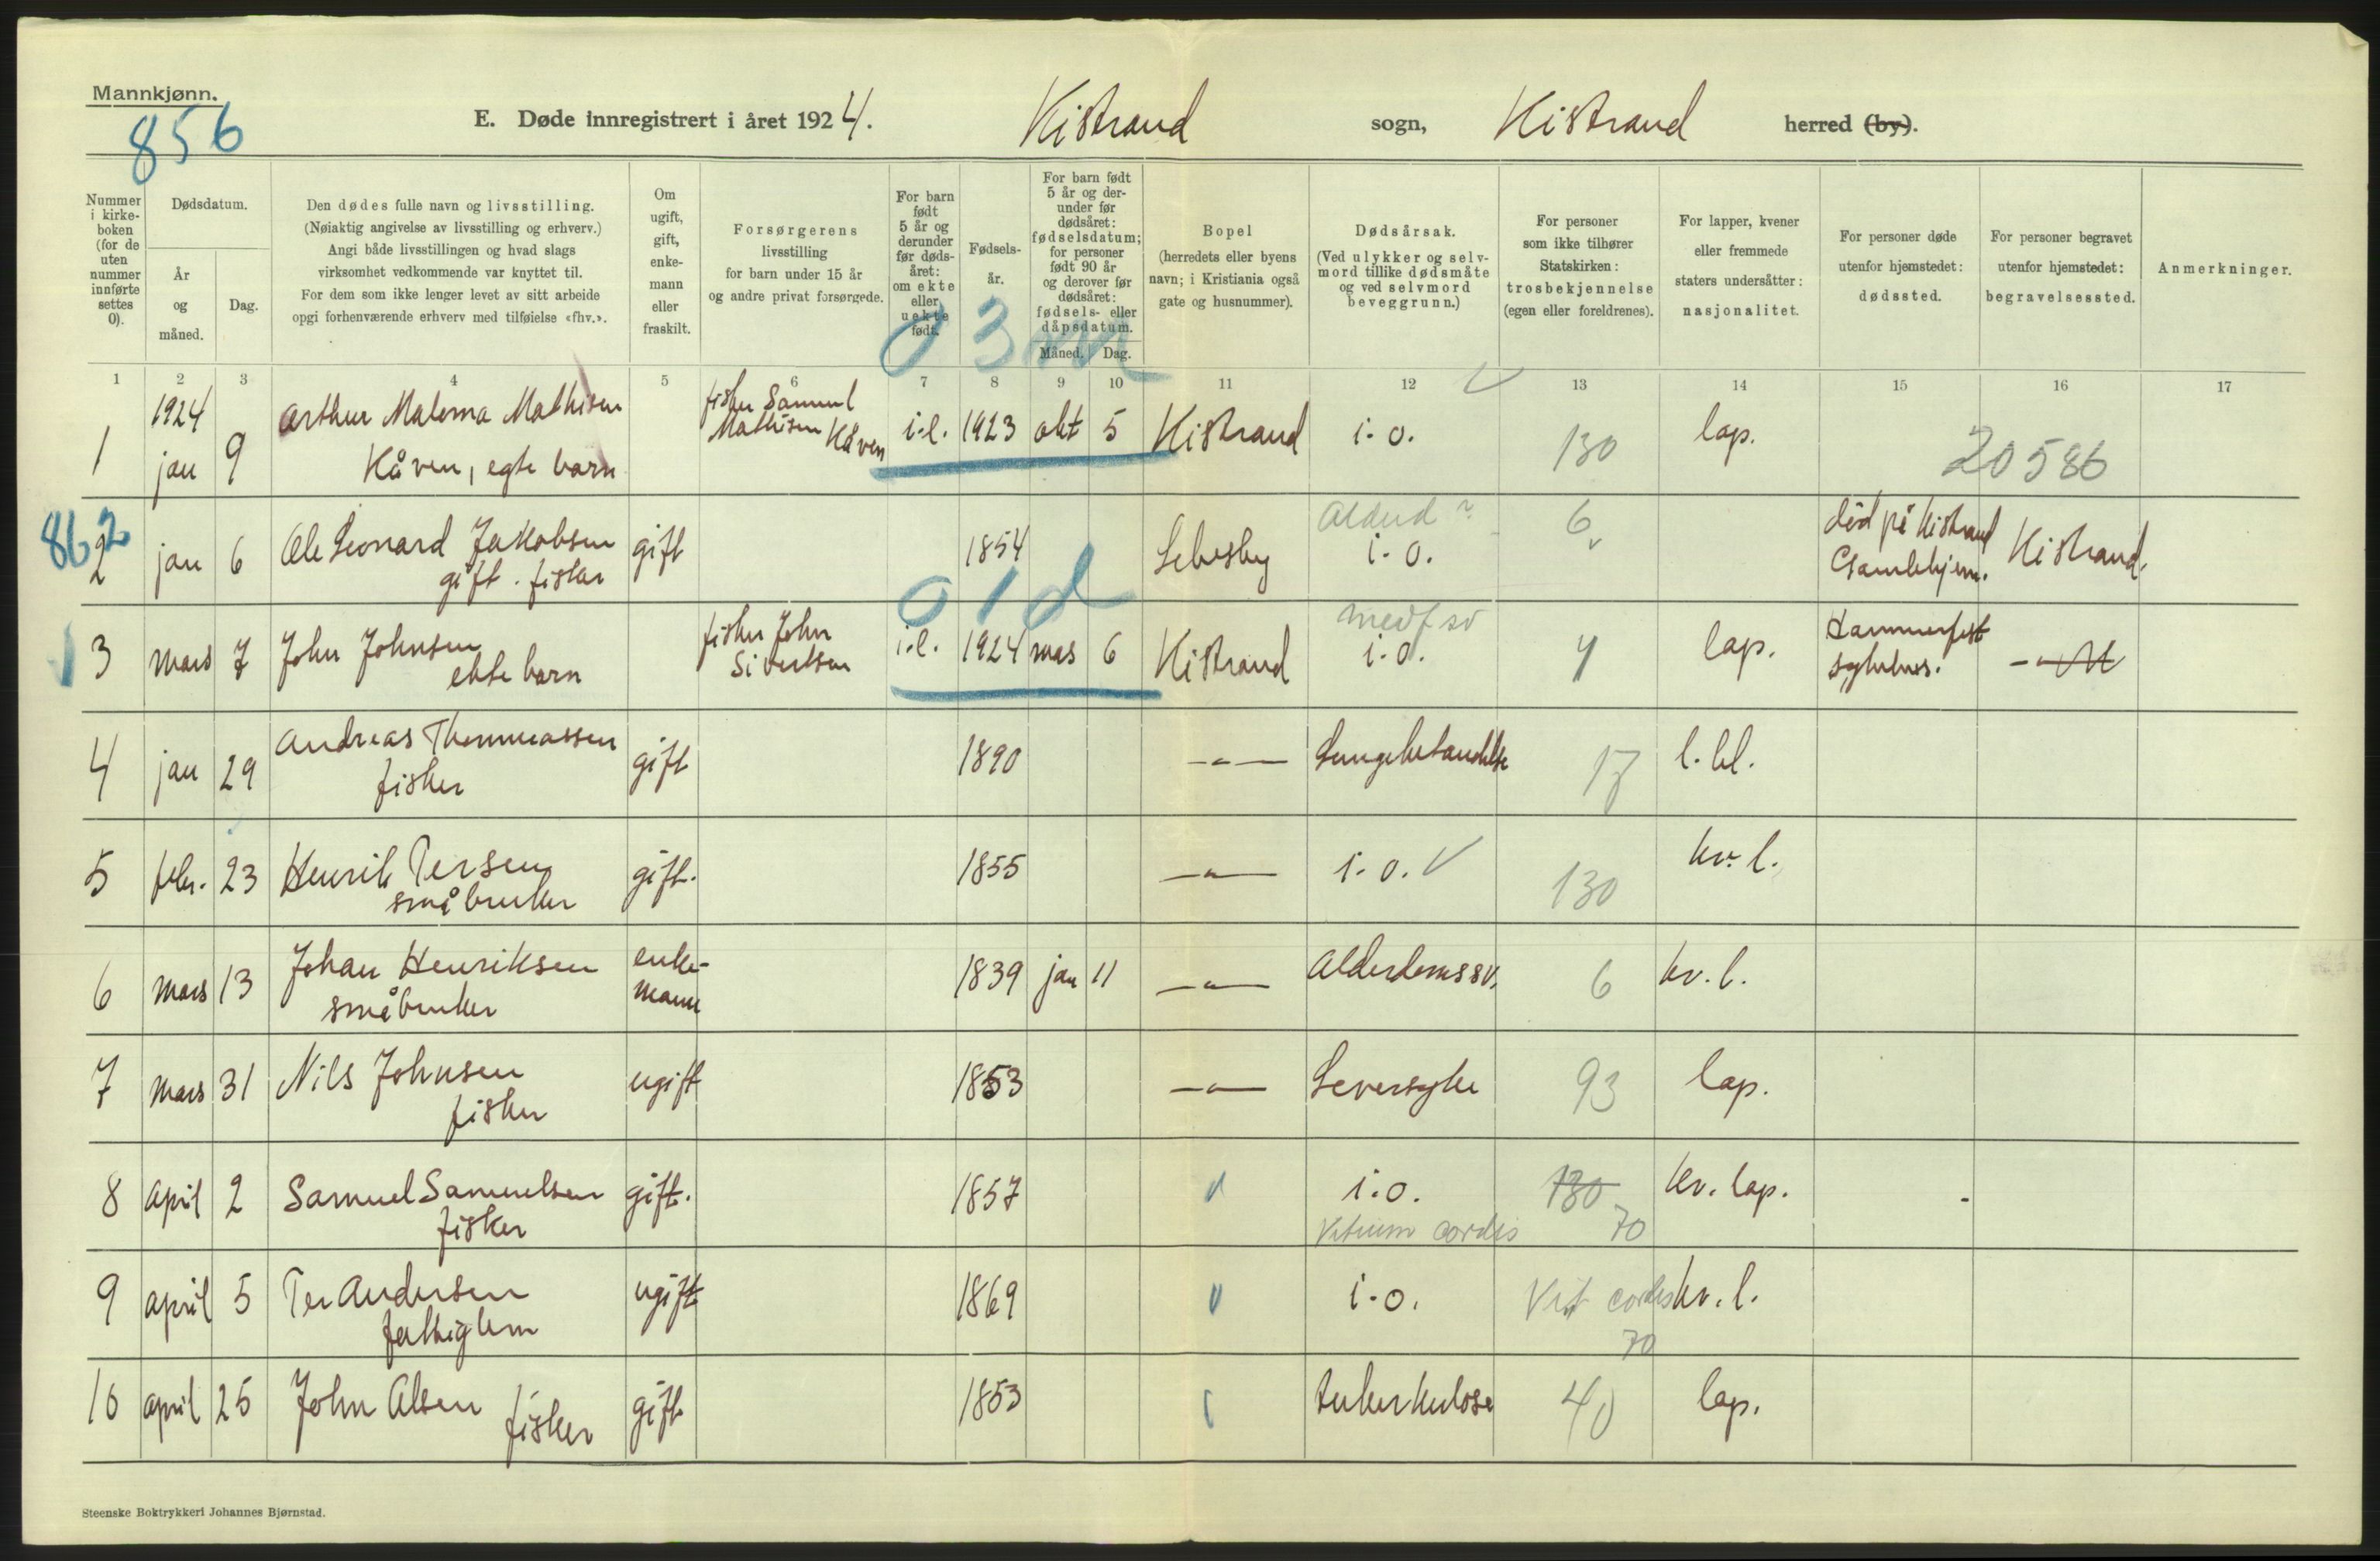 Mannkjønn.
856
E. Døde innregistrert i året 1924. Kistrand sogn, Kistrand herred (by).
Nummer i kirke-boken (for de uten nummer innførte settes 0).
Dødsdatum.
År og måned.
Dag.
Den dødes fulle navn og livsstilling.
(Nøiaktig angivelse av livsstilling og erhverv.)
Angi både livsstillingen og hvad slags
virksomhet vedkommende var knyttet til.
For dem som ikke lenger levet av sitt arbeide
opgi forhenværende erhverv med tilføielse «fhv.».
Om ugift, gift, enke-mann eller fraskilt.
Forsørgerens
livsstilling
for barn under 15 år
og andre privat forsørgede.
For barn født 5 år og derunder før døds-året: om ekte eller uekte født.
Fødsels-år.
For barn født 5 år og der-under før dødsåret: fødselsdatum; for personer født 90 år og derover før dødsåret: fødsels- eller dåpsdatum.
Måned. Dag.
Bopel
(herredets eller byens
navn; i Kristiania også
gate og husnummer).
Dødsårsak.
(Ved ulykker og selv-
mord tillike dødsmåte
og ved selvmord
beveggrunn.)
For personer
som ikke tilhører
Statskirken:
trosbekjennelse
(egen eller foreldrenes).
For lapper, kvener
eller fremmede
staters undersåtter:
nasjonalitet.
For personer døde
utenfor hjemstedet:
dødssted.
For personer begravet
utenfor hjemstedet:
begravelsessted.
Anmerkninger.
0 3 m
1 2 3 4 5 6 7 8 9 10 11 12 13 14 15 16 17
1 1924 jan 9 Arthur Malema Mathisen Kåven, egte barn fisker Samuel Mathisen Kåven i.e. 1923 okt 5 Kistrand i.o. 130 lap. 20586
862
2 jan 6 Ole Leonard Jakobsen gift. fisker gift 1854 Lebesby i.o. 6 død på Kistrand Gamlehjem. Kistrand.
0 1 d
3 mars 7 John Johnsen ekte barn fisker John Sivertsen i.e. 1924 mars 6 Kistrand medf sv i.o. 4 lap. Hammerfest sykehus.
4 jan 29 Andreas Thommassen fisker gift 1890 -"- Lungebetendelse 17 l. bl.
5 febr. 23 Henrik Persen småbruker gift. 1855 -"- i.o. 130 kv. l.
6 mars 13 Johan Henriksen småbruker enke-mann 1839 jan 11 -"- Alderdomssv. 6 kv. l.
7 mars 31 Nils Johnsen fisker ugift 1853 -"- Leversyke 93 lap.
8 april 2 Samuel Samuelsen fisker gift. 1857 i.o. Vitium cordis 130 70 kv. lap.
9 april 5 Per Andersen fattiglem ugift 1869 i.o. Vit cordis 70 kv. l.
10 april 25 John Olsen fisker gift 1853 tuberkulose 40 lap.
Steenske Boktrykkeri Johannes Bjørnstad.